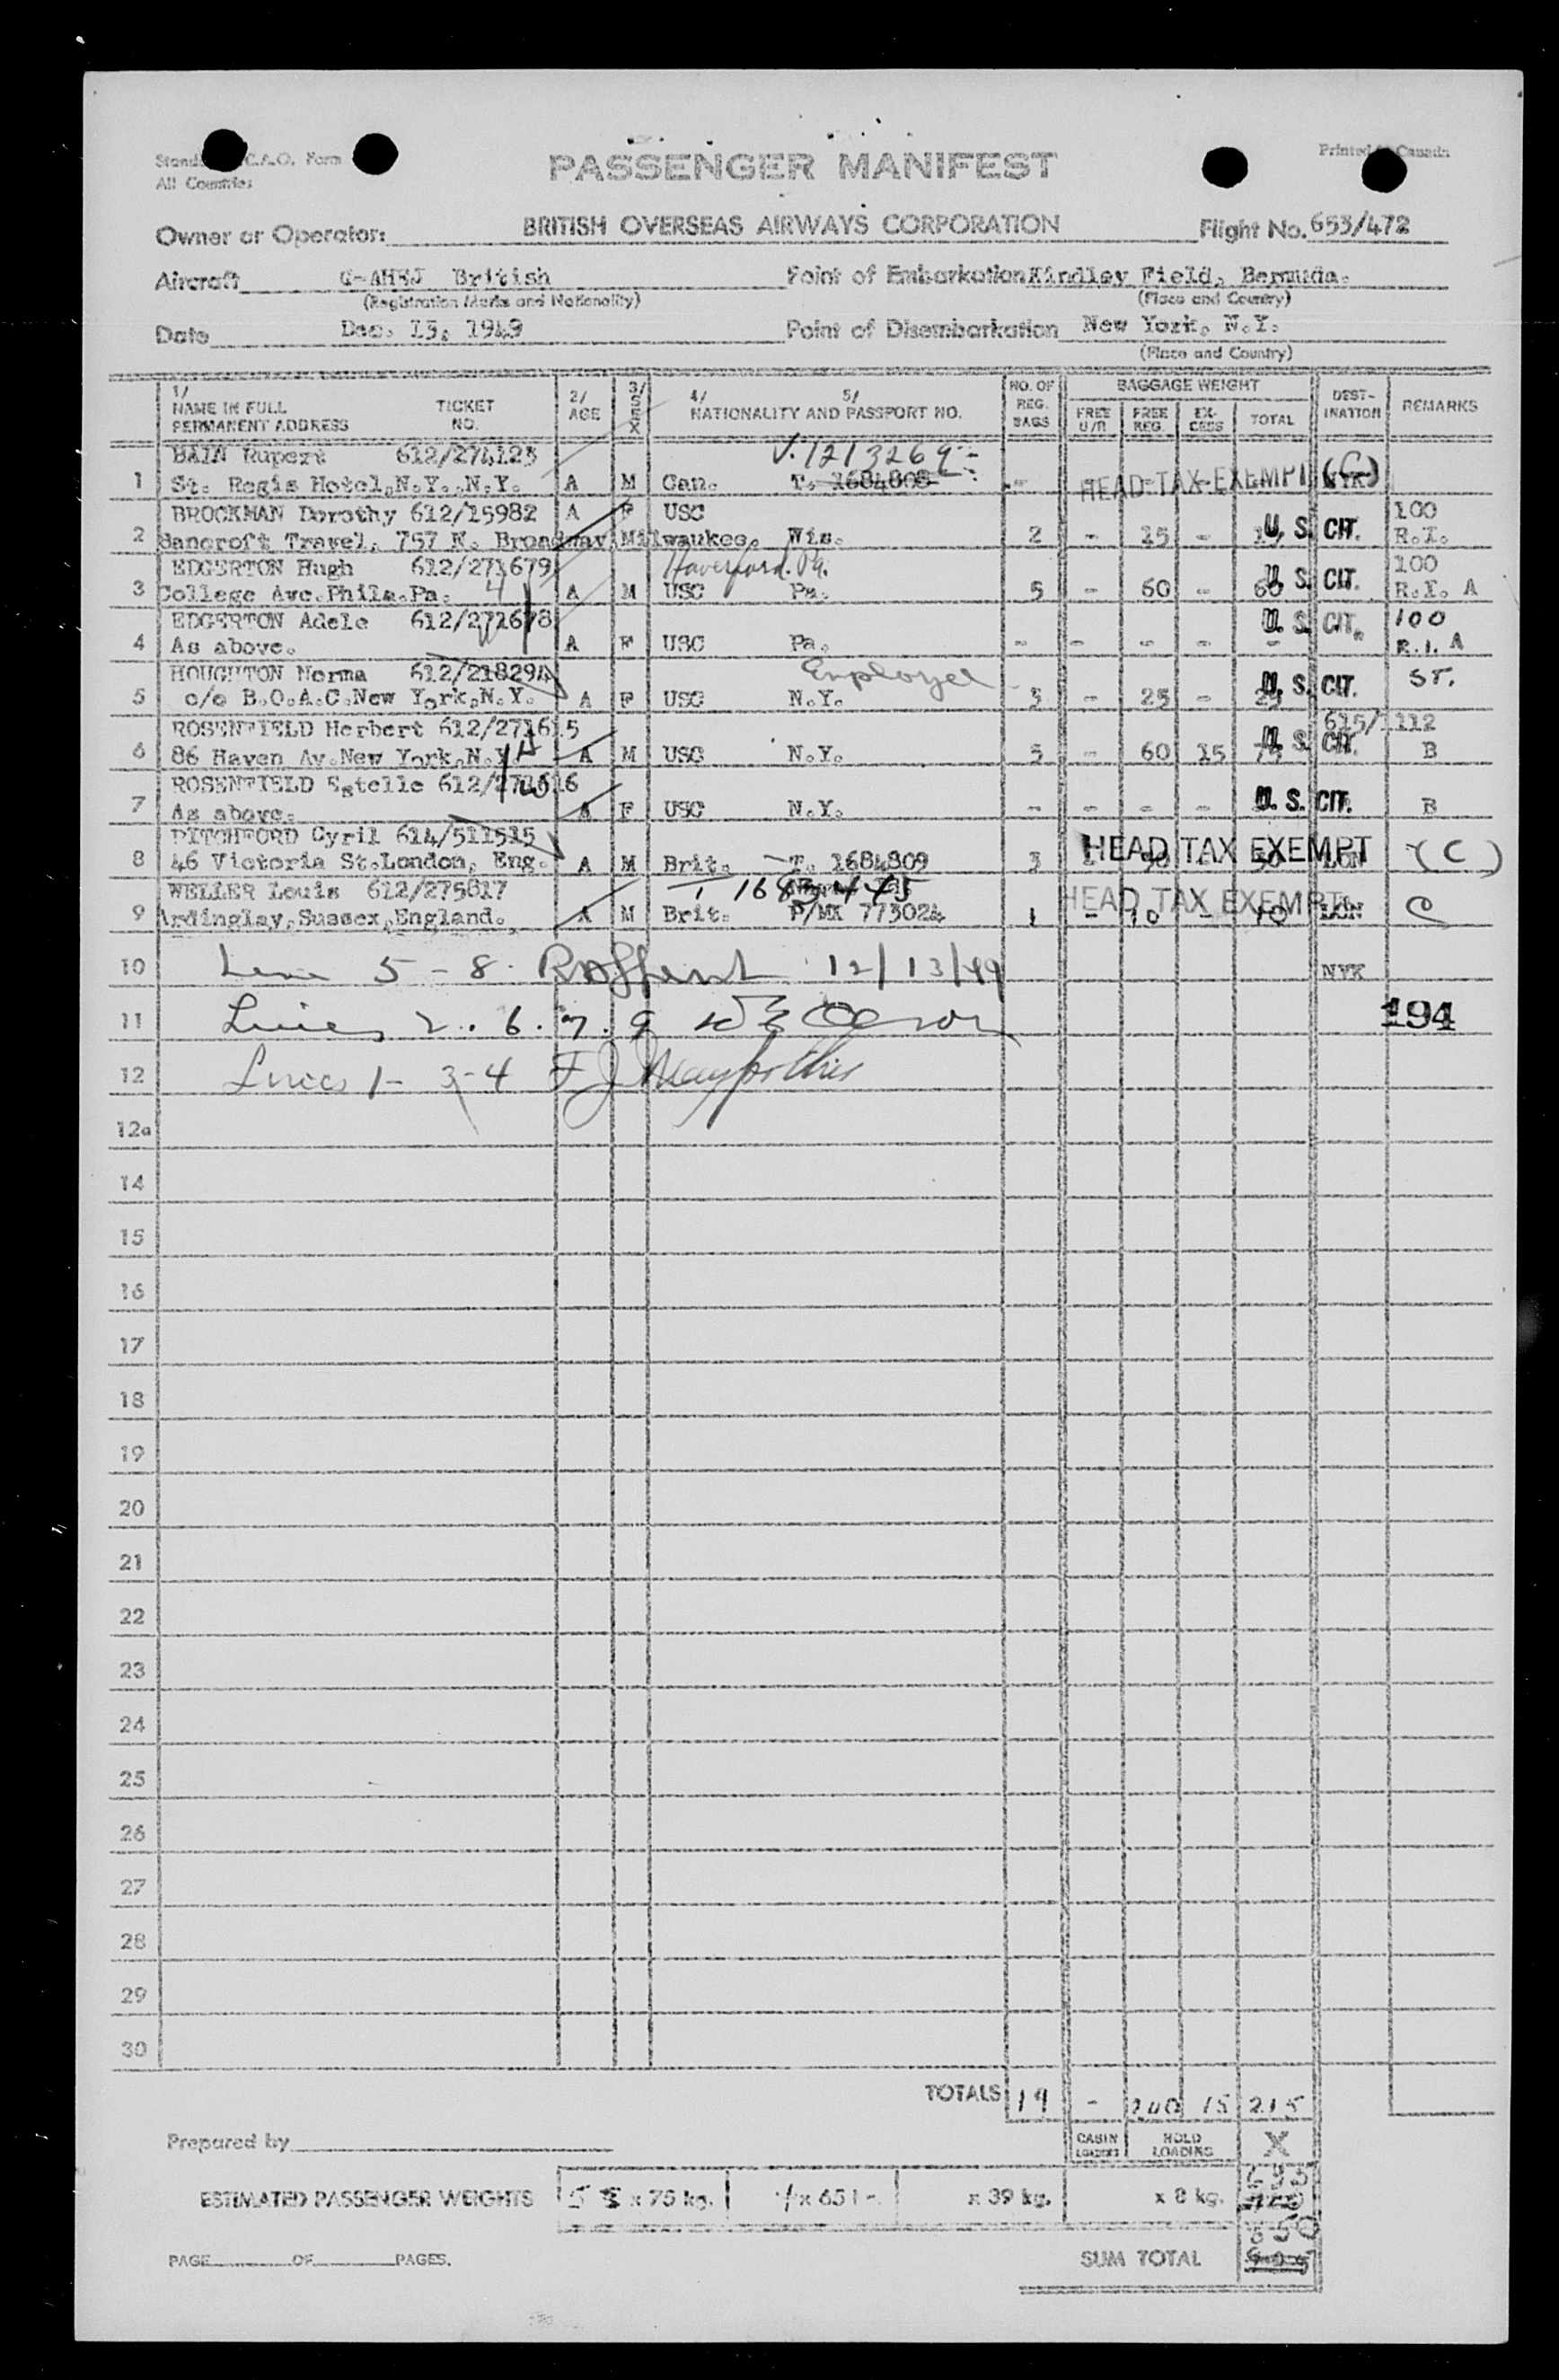 Printed in Canada
C.A.O. Form
All Countries
PASSENGER MANIFEST
Owner or Operator: BRITISH OVERSEAS AIRWAYS CORPORATION Flight No. 653/472
Aircraft G-AHEJ British Point of Embarkation Kindley Field, Bermuda.
(Registration Marks and Nationality) (Place and Country)
Date Dec. 13, 1949 Point of Disembarkation New York, N.Y.
(Place and Country)
1/ NAME IN FULL PERMANENT ADDRESS TICKET NO. 2/ AGE 3/ SEX 4/ 5/ NATIONALITY AND PASSPORT NO. NO. OF REG. BAGS BAGGAGE WEIGHT FREE U/R FREE REG. EX-CESS TOTAL DEST-INATION REMARKS
BAIN Rupert 612/274123 V.1213269
1 St. Regis Hotel,N.Y.,N.Y. A M Can. T. 1684808 - HEAD TAX EXEMPT (C)
BROCKMAN Dorothy 612/15982 A F USC 100
2 Bancroft Travel, 757 N. Broadway, Milwaukee, Wis. 2 - 15 - U. S. CIT. R.I.
EDGERTON Hugh 612/271679 Haverford. Pa. 100
3 College Ave.Phila.Pa. 4 A M USC Pa. 5 - 60 - 60 U. S. CIT. R.I. A
EDGERTON Adele 612/271678 U. S. CIT. 100
4 As above. A F USC Pa. - - - - - R.I. A
HOUGHTON Norma 612/218294 Employee
5 c/o B.O.A.C.New York,N.Y. A F USC N.Y. 3 - 25 - 25 U. S. CIT. ST.
ROSENFIELD Herbert 612/271615 615/1112
6 86 Haven Av.New York,N.Y. A M USC N.Y. 5 - 60 15 75 U. S. CIT. B
ROSENFIELD Estelle 612/271616
7 As above. A F USC N.Y. - - - - U. S. CIT. B
PITCHFORD Cyril 614/511515
8 46 Victoria St.London, Eng. A M Brit. T. 1684809 3 HEAD TAX EXEMPT LON (C)
WELLER Louis 612/275817 T 1683445
9 Ardinglay,Sussex,England. A M Brit. P/MK 773024 1 - 10 - 10 HEAD TAX EXEMPT LON C
10 Line 5 - 8. 12/13/49 NYK
11 Lines 2. 6. 7. 9 194
12 Lines 1- 3-4 F J
12a
14
15
16
17
18
19
20
21
22
23
24
25
26
27
28
29
30
TOTALS 19 - 200 15 215
Prepared by CABIN LOADING HOLD LOADING X
ESTIMATED PASSENGER WEIGHTS 5 x 75 kg. 4 x 65 x 39 kg. x 8 kg.
PAGE OF PAGES. SUM TOTAL